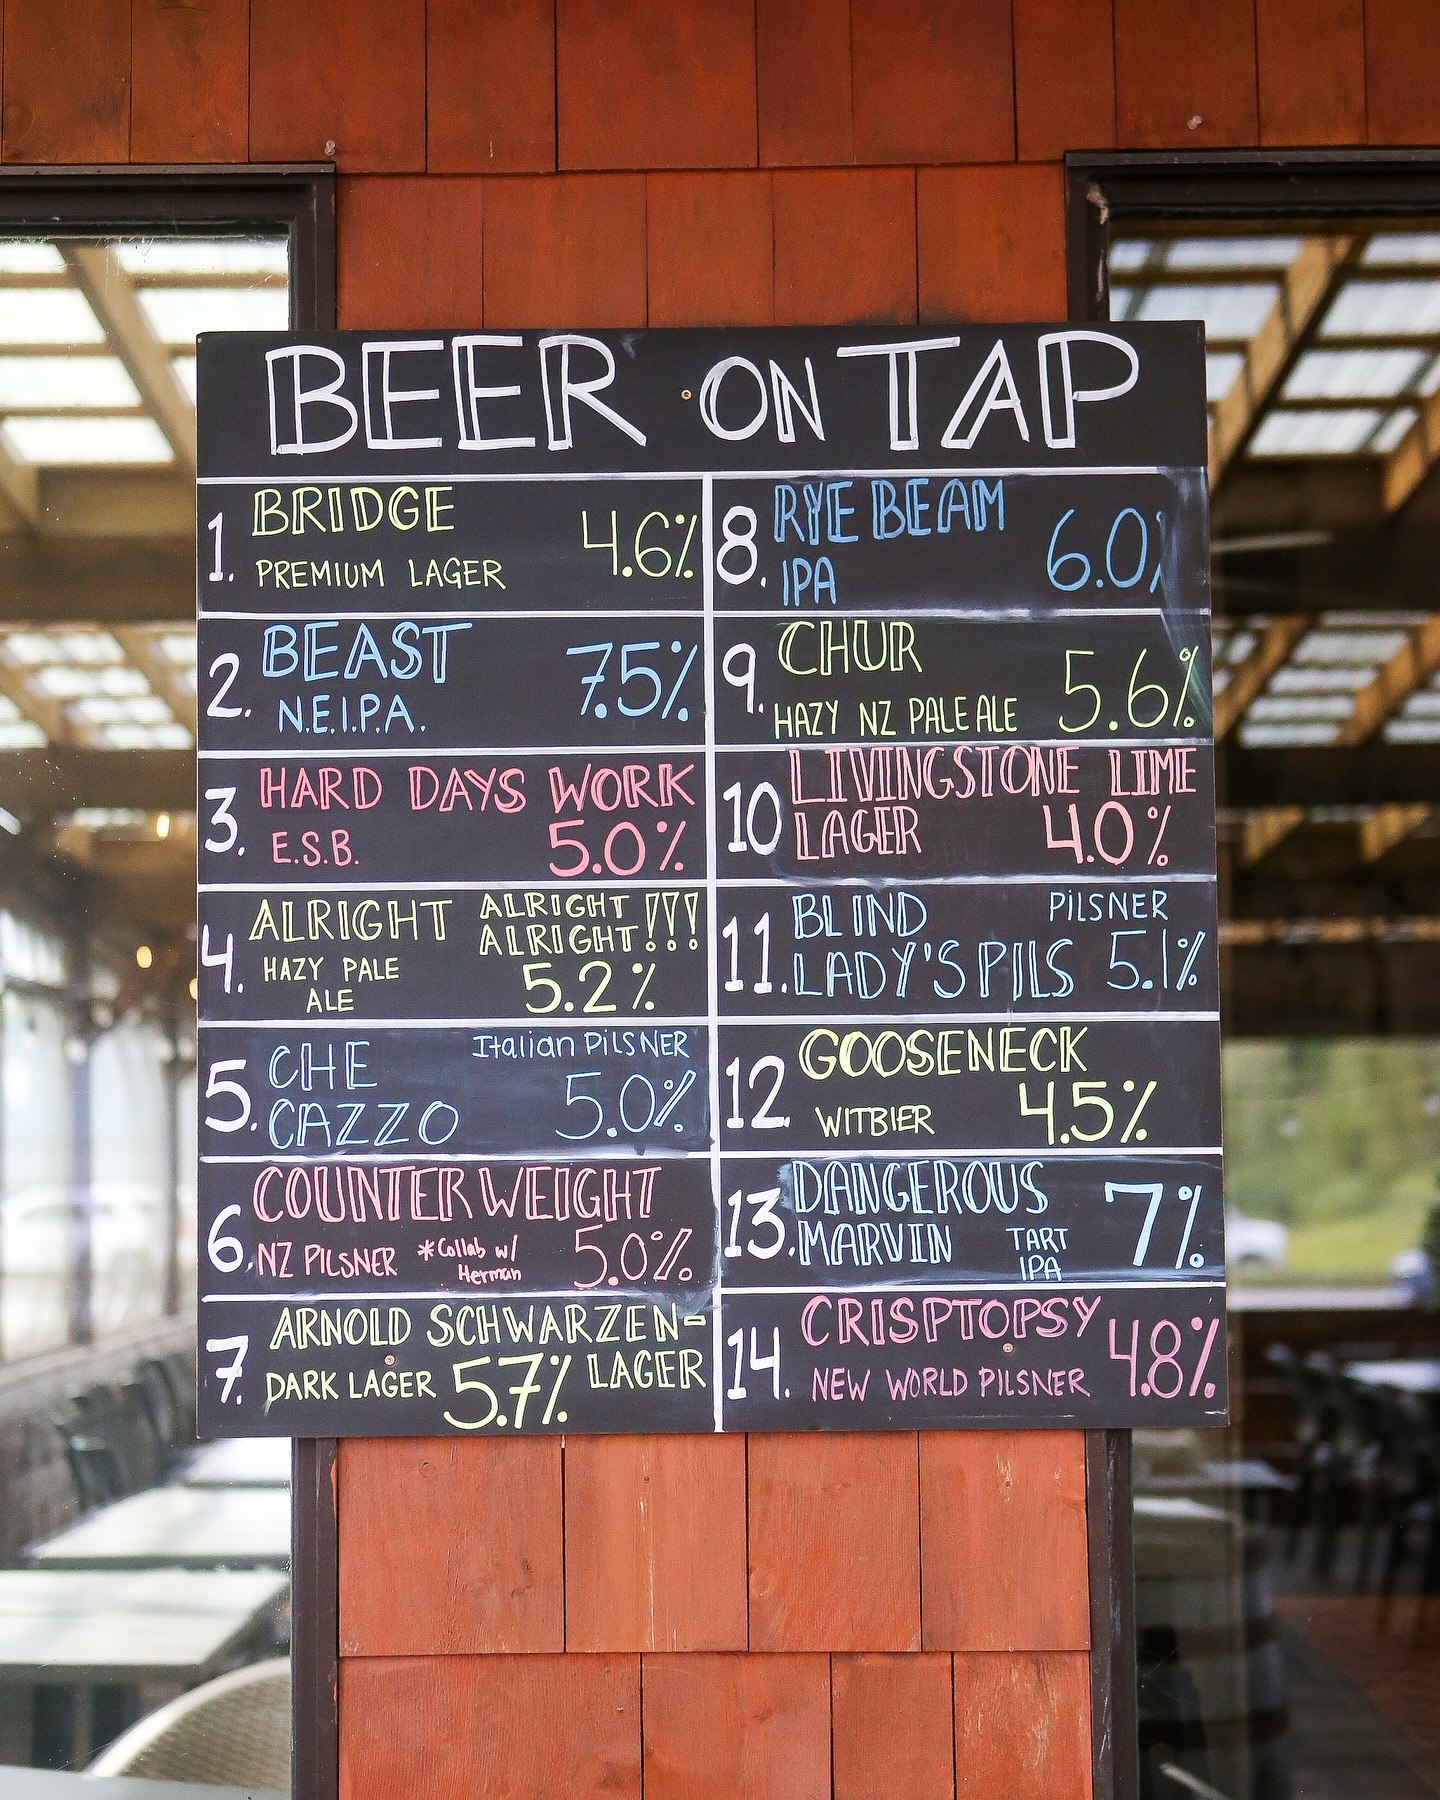 BEER ON TAP
1. BRIDGE
PREMIUM LAGER 4.6%
2. BEAST 7.5%
N.E.I.P.A.
3. HARD DAYS WORK
E.S.B. 5.0%
4. ALRIGHT ALRIGHT ALRIGHT!!!
HAZY PALE
ALE 5.2%
5. CHE Italian PILSNER
CAZZO 5.0%
6. COUNTERWEIGHT
NZ PILSNER *Collab w/ 5.0%
Herman
7. ARNOLD SCHWARZEN-
DARK LAGER 5.7% LAGER
8. RYE BEAM 6.0%
IPA
9. CHUR
HAZY NZ PALE ALE 5.6%
10 LIVINGSTONE LIME
LAGER 4.0%
11. BLIND PILSNER
LADY'S PILS 5.1%
12. GOOSENECK
WITBIER 4.5%
13. DANGEROUS 7%
MARVIN TART
IPA
14. CRISPTOPSY 4.8%
NEW WORLD PILSNER